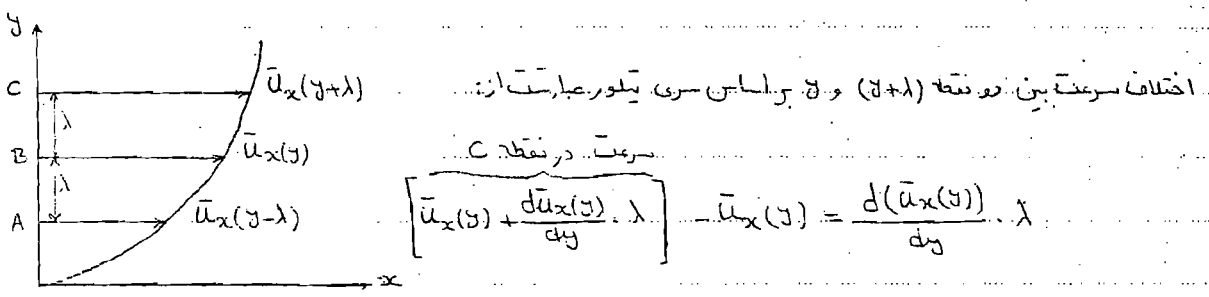 y
C
λ
B
λ
A
x
ū_x(y+λ)
ū_x(y)
ū_x(y-λ)
اختلاف سرعت بین دو نقطه (y+λ) و y بر اساس سری تیلور عبارتست از:
سرعت در نقطه C
[ū_x(y) + dū_x(y)/dy · λ] - ū_x(y) = d(ū_x(y))/dy · λ